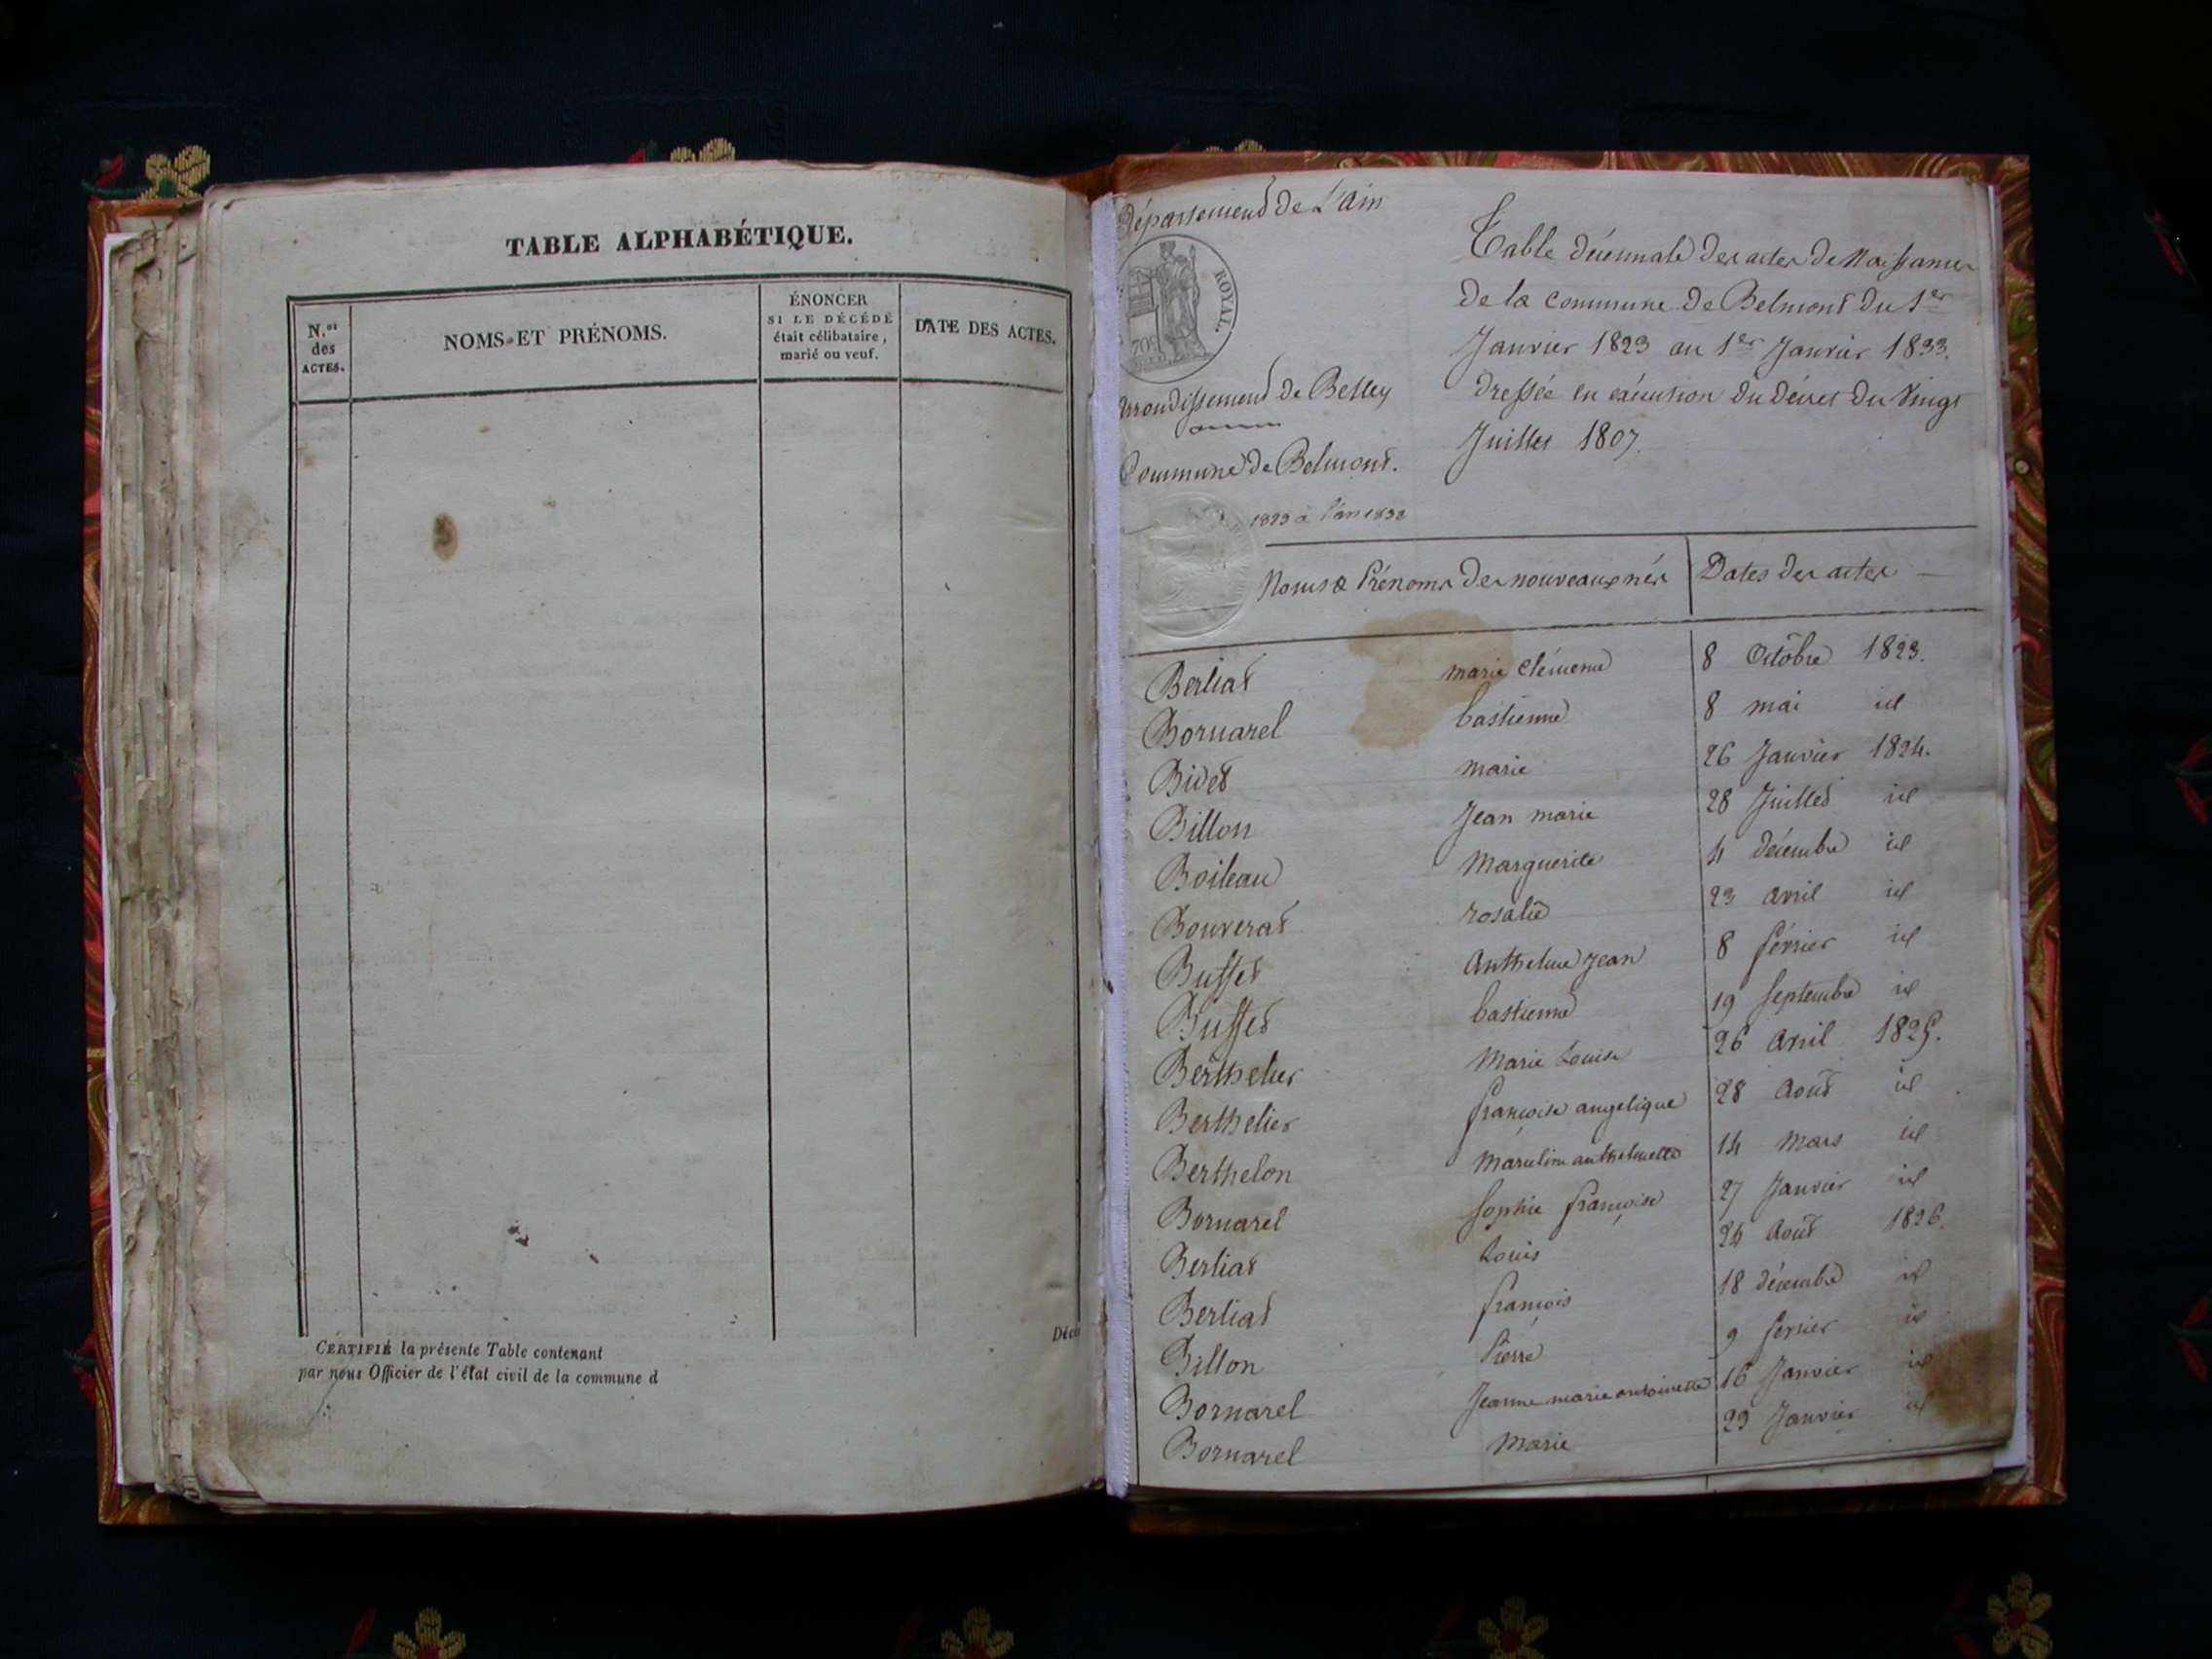 TABLE ALPHABÉTIQUE.
N.os
des
ACTES.
NOMS ET PRÉNOMS.
ÉNONCER
SI LE DÉCÉDÉ
était célibataire,
marié ou veuf.
DATE DES ACTES.
CERTIFIÉ la présente Table contenant
par nous Officier de l'état civil de la commune d
Département de L'ain
ROYAL.
Arrondissement de Belley
Commune de Belmont.
1823 à l'an 1832
Table décennale des actes de Naissances
de la commune de Belmont du 1er
Janvier 1823 au 1er Janvier 1833.
dressée en exécution du décret du Vingt
Juillet 1807.
Noms & Prénoms des nouveaux nés Dates des actes
Berliat marie Clémence 8 Octobre 1823.
Bornarel bastienne 8 mai id
Bivet marie 26 Janvier 1824.
Billon Jean marie 28 Juillet id
Boileau Marguerite 4 décembre id
Bouverat rosalie 23 avril id
Buffet Anthelme Jean 8 février id
Buffet bastienne 19 Septembre id
Berthelier Marie Louise 26 avril 1825.
Berthelier françoise angelique 28 Aout id
Berthelon Marceline anthelmette 14 Mars id
Bornarel Sophie françoise 27 Janvier id
Berliat Louis 24 Aout 1826.
Berliat françois 18 décembre id
Billon Pierre 9 février id
Bornarel Jeanne marie antoinette 16 Janvier id
Bornarel Marie 23 Janvier id